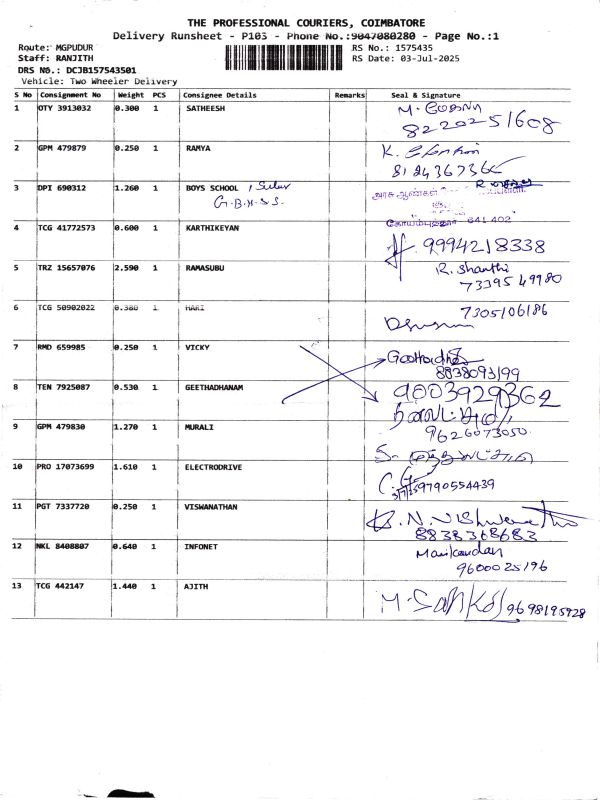 THE PROFESSIONAL COURIERS, COIMBATORE
Delivery Runsheet - P103 - Phone No.:9047080280 - Page No.:1
Route: MGPUDUR
RS No.: 1575435
Staff: RANJITH
RS Date: 03-Jul-2025
DRS No.: DCJB157543501
Vehicle: Two Wheeler Delivery
S No Consignment No Weight PCS Consignee Details Remarks Seal & Signature
1 OTY 3913032 0.300 1 SATHEESH
8220251608
2 GPM 479879 0.250 1 RAMYA K.
3 DPI 690312 1.260 1 BOYS SCHOOL
G.B.H.S.S.
அரசு ஆண்கள்
கோயம்புத்தூர் 641 402
4 TCG 41772573 0.600 1 KARTHIKEYAN
9994218338
5 TRZ 15657076 2.590 1 RAMASUBU R. Shanthi
7339549980
6 TCG 50902022 0.380 1 HARI 7305106186
7 RMD 659985 0.250 1 VICKY
8838093199
8 TEN 7925087 0.530 1 GEETHADHANAM 9003929362
9 GPM 479830 1.270 1 MURALI 9626073050
10 PRO 17073699 1.610 1 ELECTRODRIVE
9790554439
11 PGT 7337720 0.250 1 VISWANATHAN
8838368683
12 NKL 8408807 0.640 1 INFONET Manikandan
9600025196
13 TCG 442147 1.440 1 AJITH 9698195928